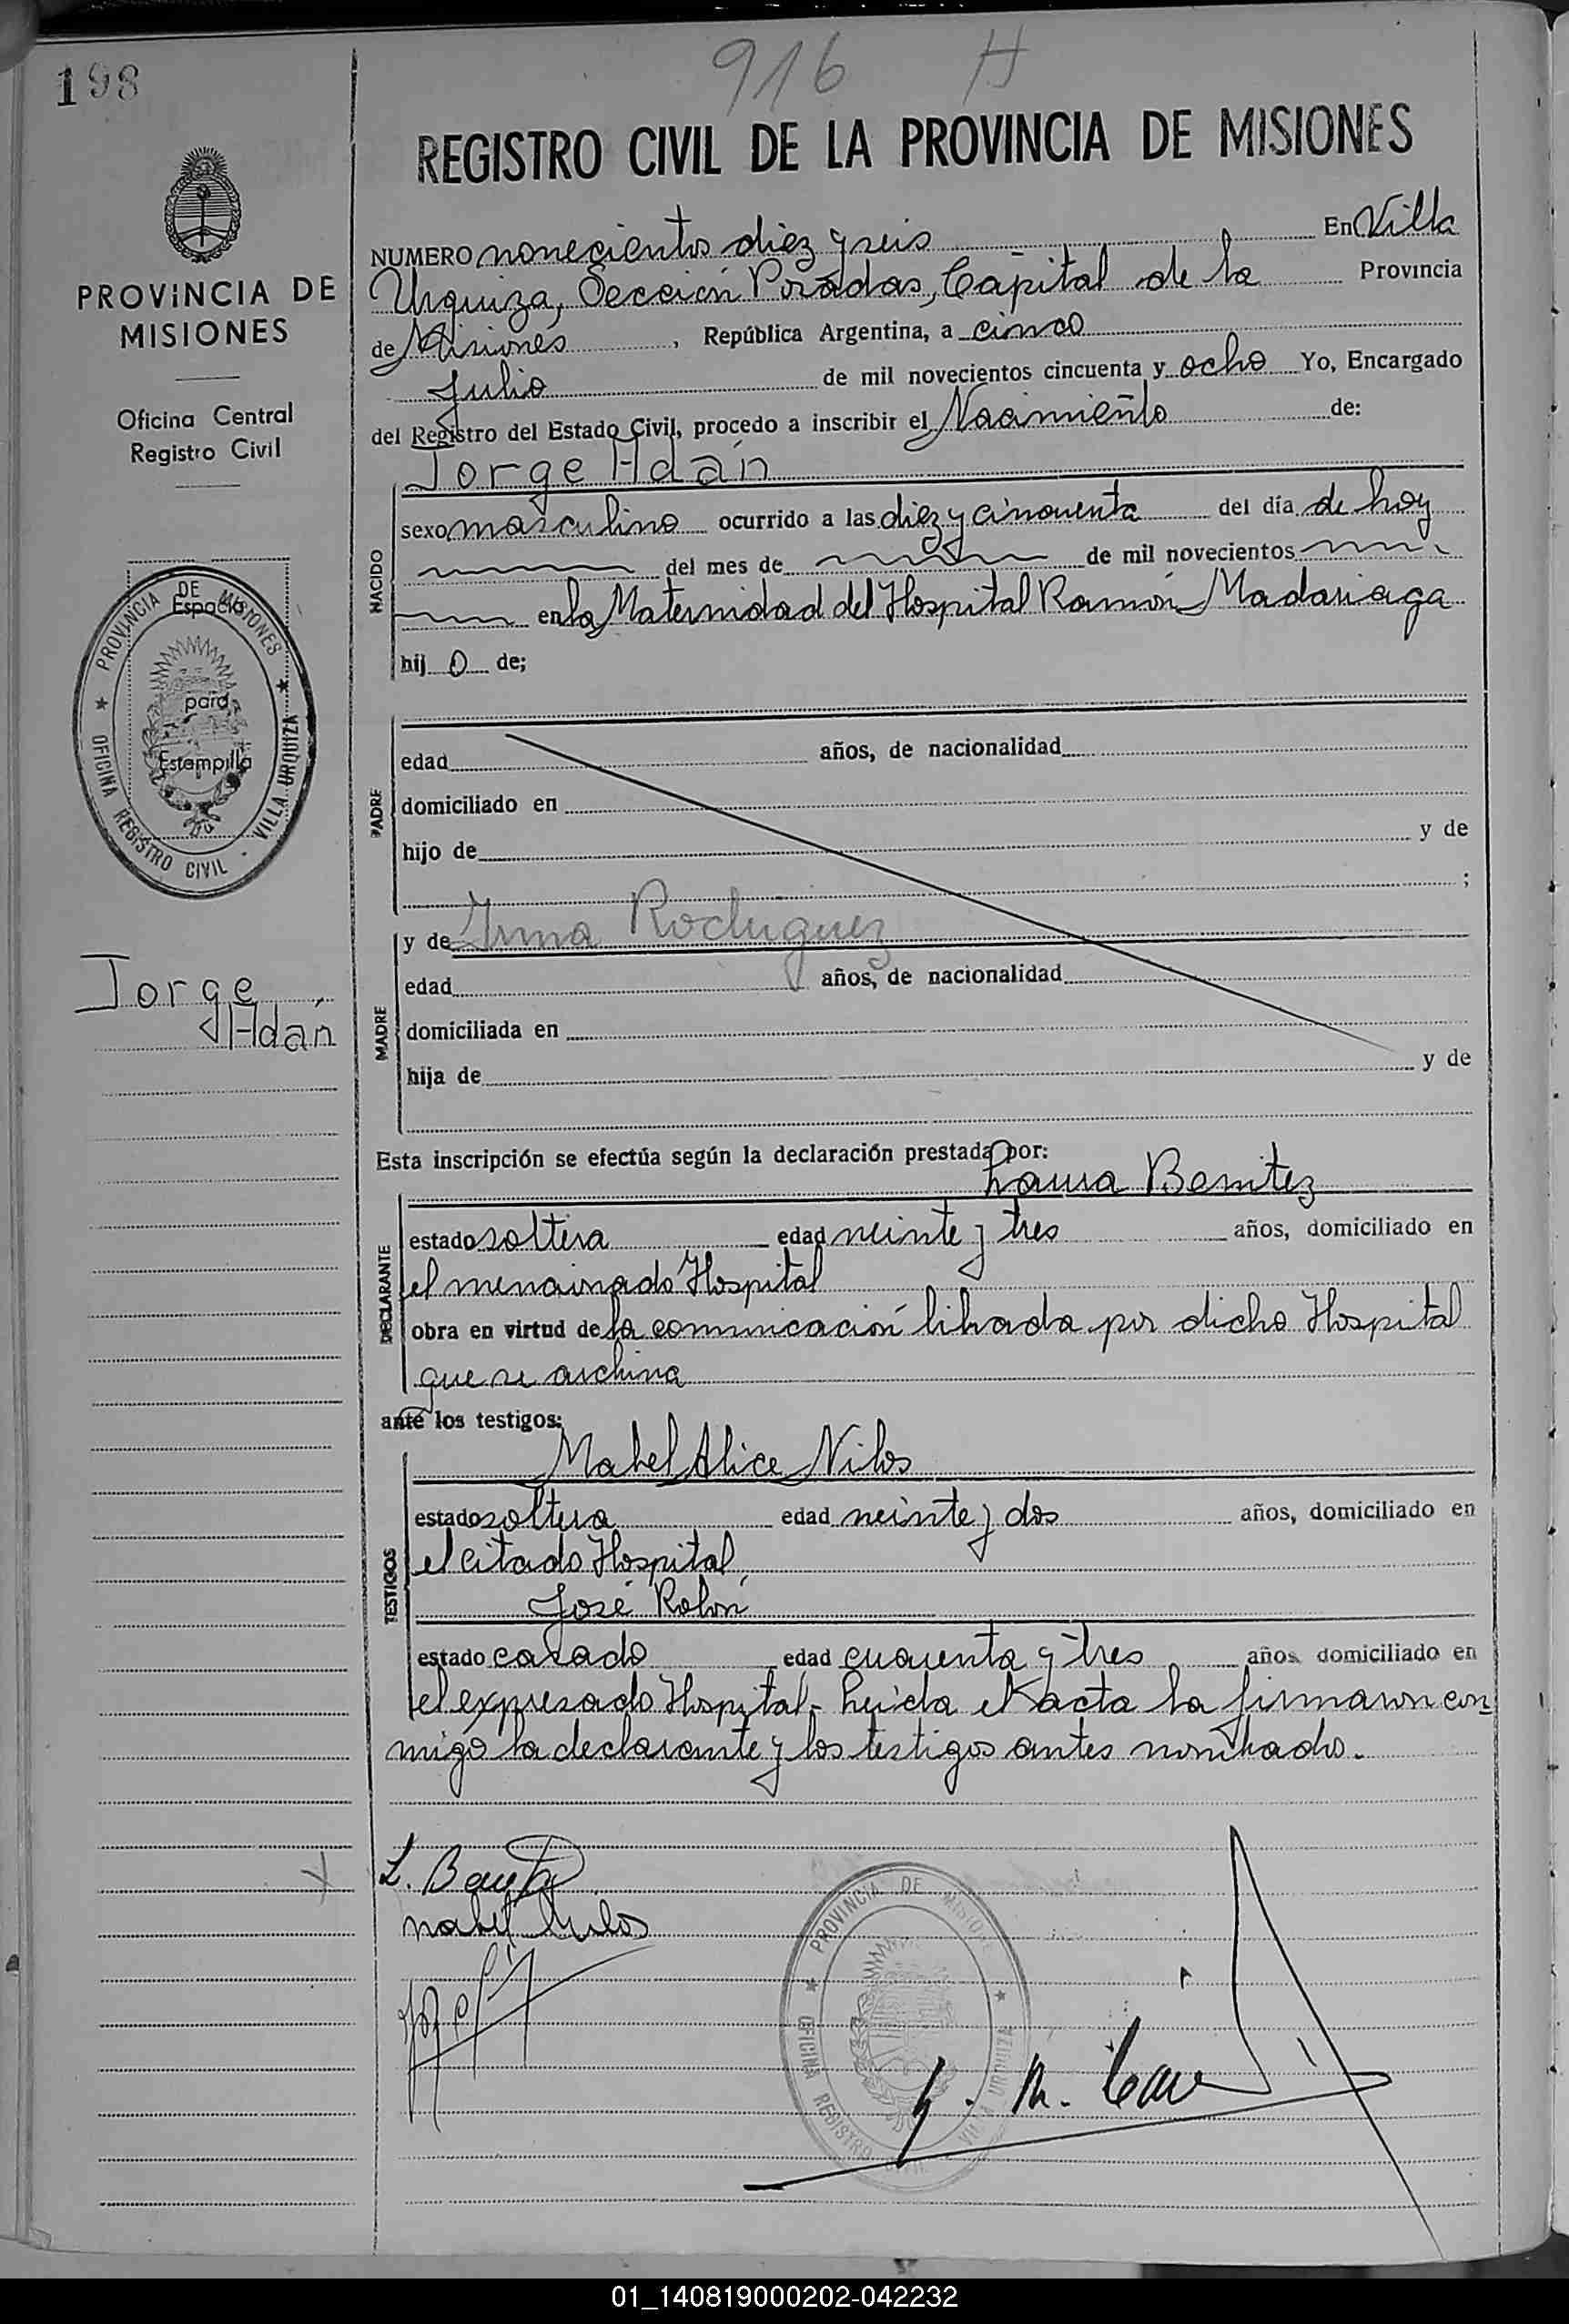 198
916 H
REGISTRO CIVIL DE LA PROVINCIA DE MISIONES
PROVINCIA DE
MISIONES
Oficina Central
Registro Civil
PROVINCIA DE MISIONES
OFICINA REGISTRO CIVIL - VILLA URQUIZA
Espacio
para
Estampilla
Jorge
Adán
NUMERO novecientos diez y seis En Villa
Urquiza, Sección Posadas, Capital de la Provincia
de Misiones, República Argentina, a cinco
Julio de mil novecientos cincuenta y ocho Yo, Encargado
del Registro del Estado Civil, procedo a inscribir el Nacimiento de:
Jorge Adán
NACIDO
sexo masculino ocurrido a las diez y cincuenta del día de hoy
del mes de de mil novecientos
en la Maternidad del Hospital Ramón Madariaga
hij o de;
PADRE
edad años, de nacionalidad
domiciliado en
hijo de y de
;
y de Irma Rodriguez
MADRE
edad años, de nacionalidad
domiciliada en
hija de y de
Esta inscripción se efectúa según la declaración prestada por:
Laura Benitez
DECLARANTE
estado soltera edad veinte y tres años, domiciliado en
el mencionado Hospital
obra en virtud de la comunicación librada por dicho Hospital
que se archiva
ante los testigos:
Mabel Alice Nilos
TESTIGOS
estado soltera edad veinte y dos años, domiciliado en
el citado Hospital,
José Rolón
estado casado edad cuarenta y tres años domiciliado en
el expresado Hospital.- Leída el acta la firmaron con-
migo la declarante y los testigos antes nombrado.-
L. Benitez
Mabel Nilos
PROVINCIA DE MISIONES
OFICINA REGISTRO CIVIL VILLA URQUIZA
01_140819000202-042232